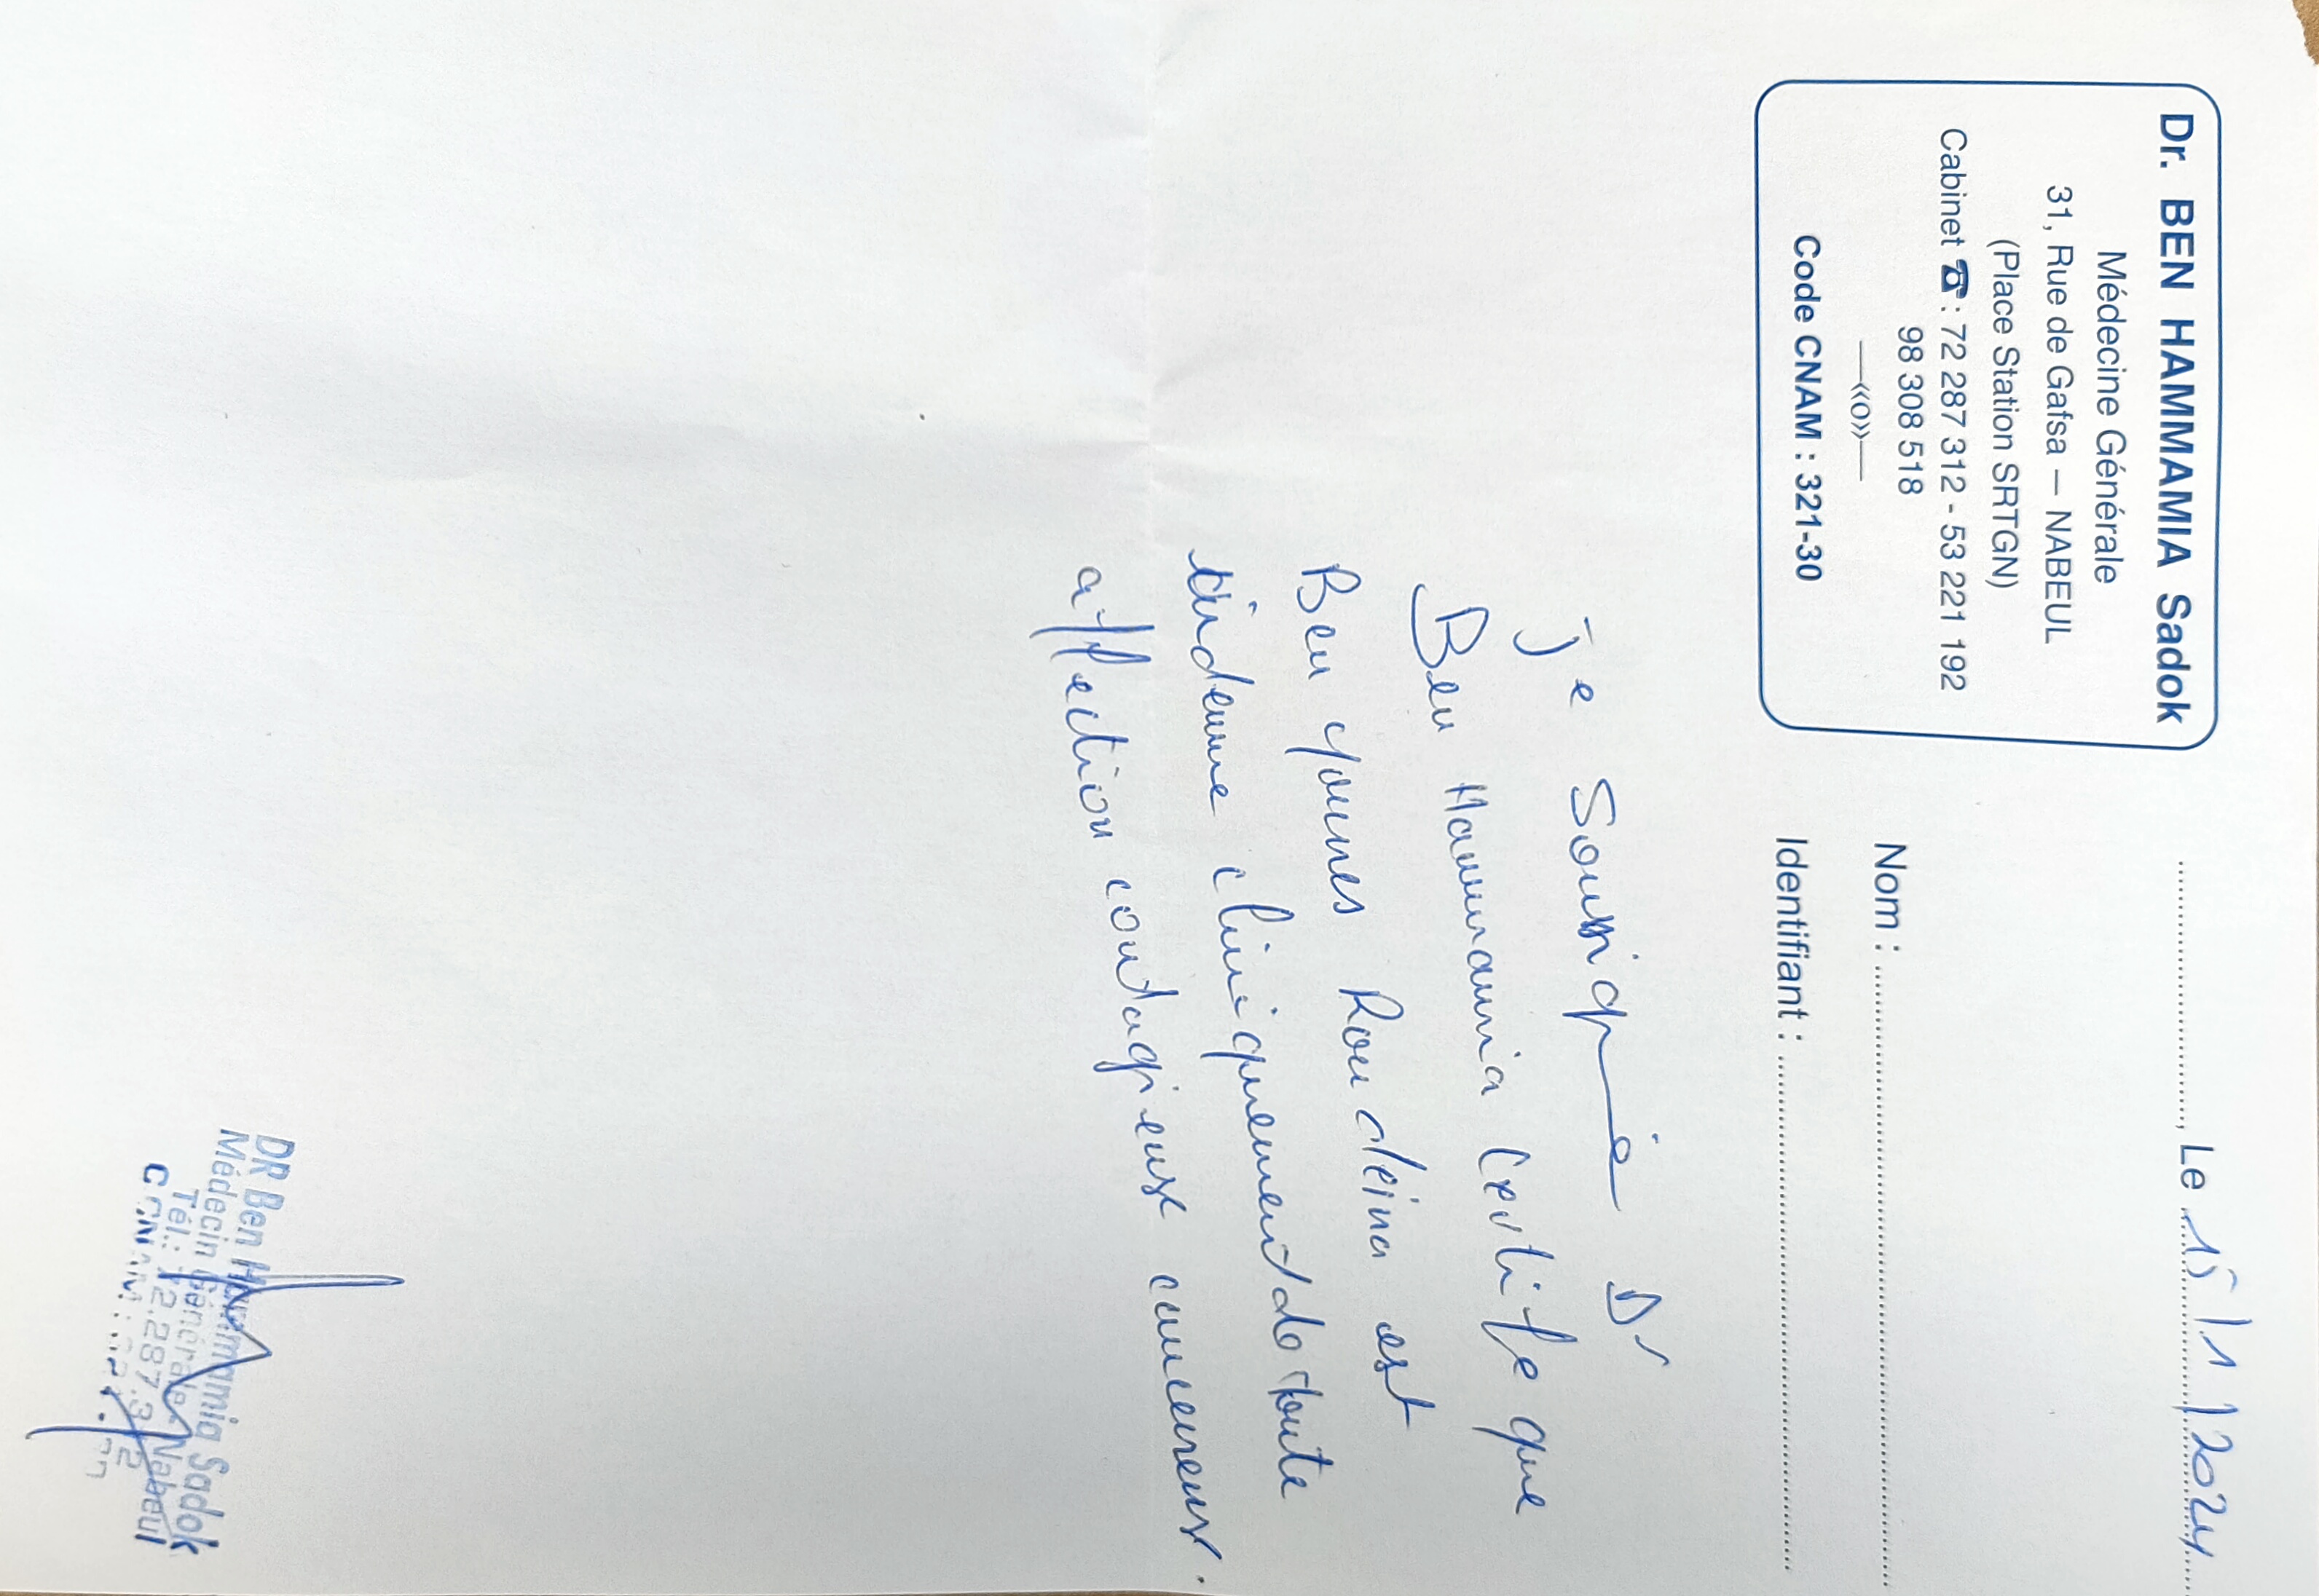 Dr. BEN HAMMAMIA Sadok
Médecine Générale
31, Rue de Gafsa – NABEUL
(Place Station SRTGN)
Cabinet ☎ : 72 287 312 - 53 221 192
98 308 518
—«o»—
Code CNAM : 321-30
...................., Le 15/11/2024
Nom : ....................
Identifiant : ....................
Je Soussigné Dr
Ben Hammamia Certifie que
Ben younes est
indemne cliniquement de toute
affection contagieuse
DR Ben Hammamia Sadok
Médecin Générale Nabeul
Tél.: 72.287.312